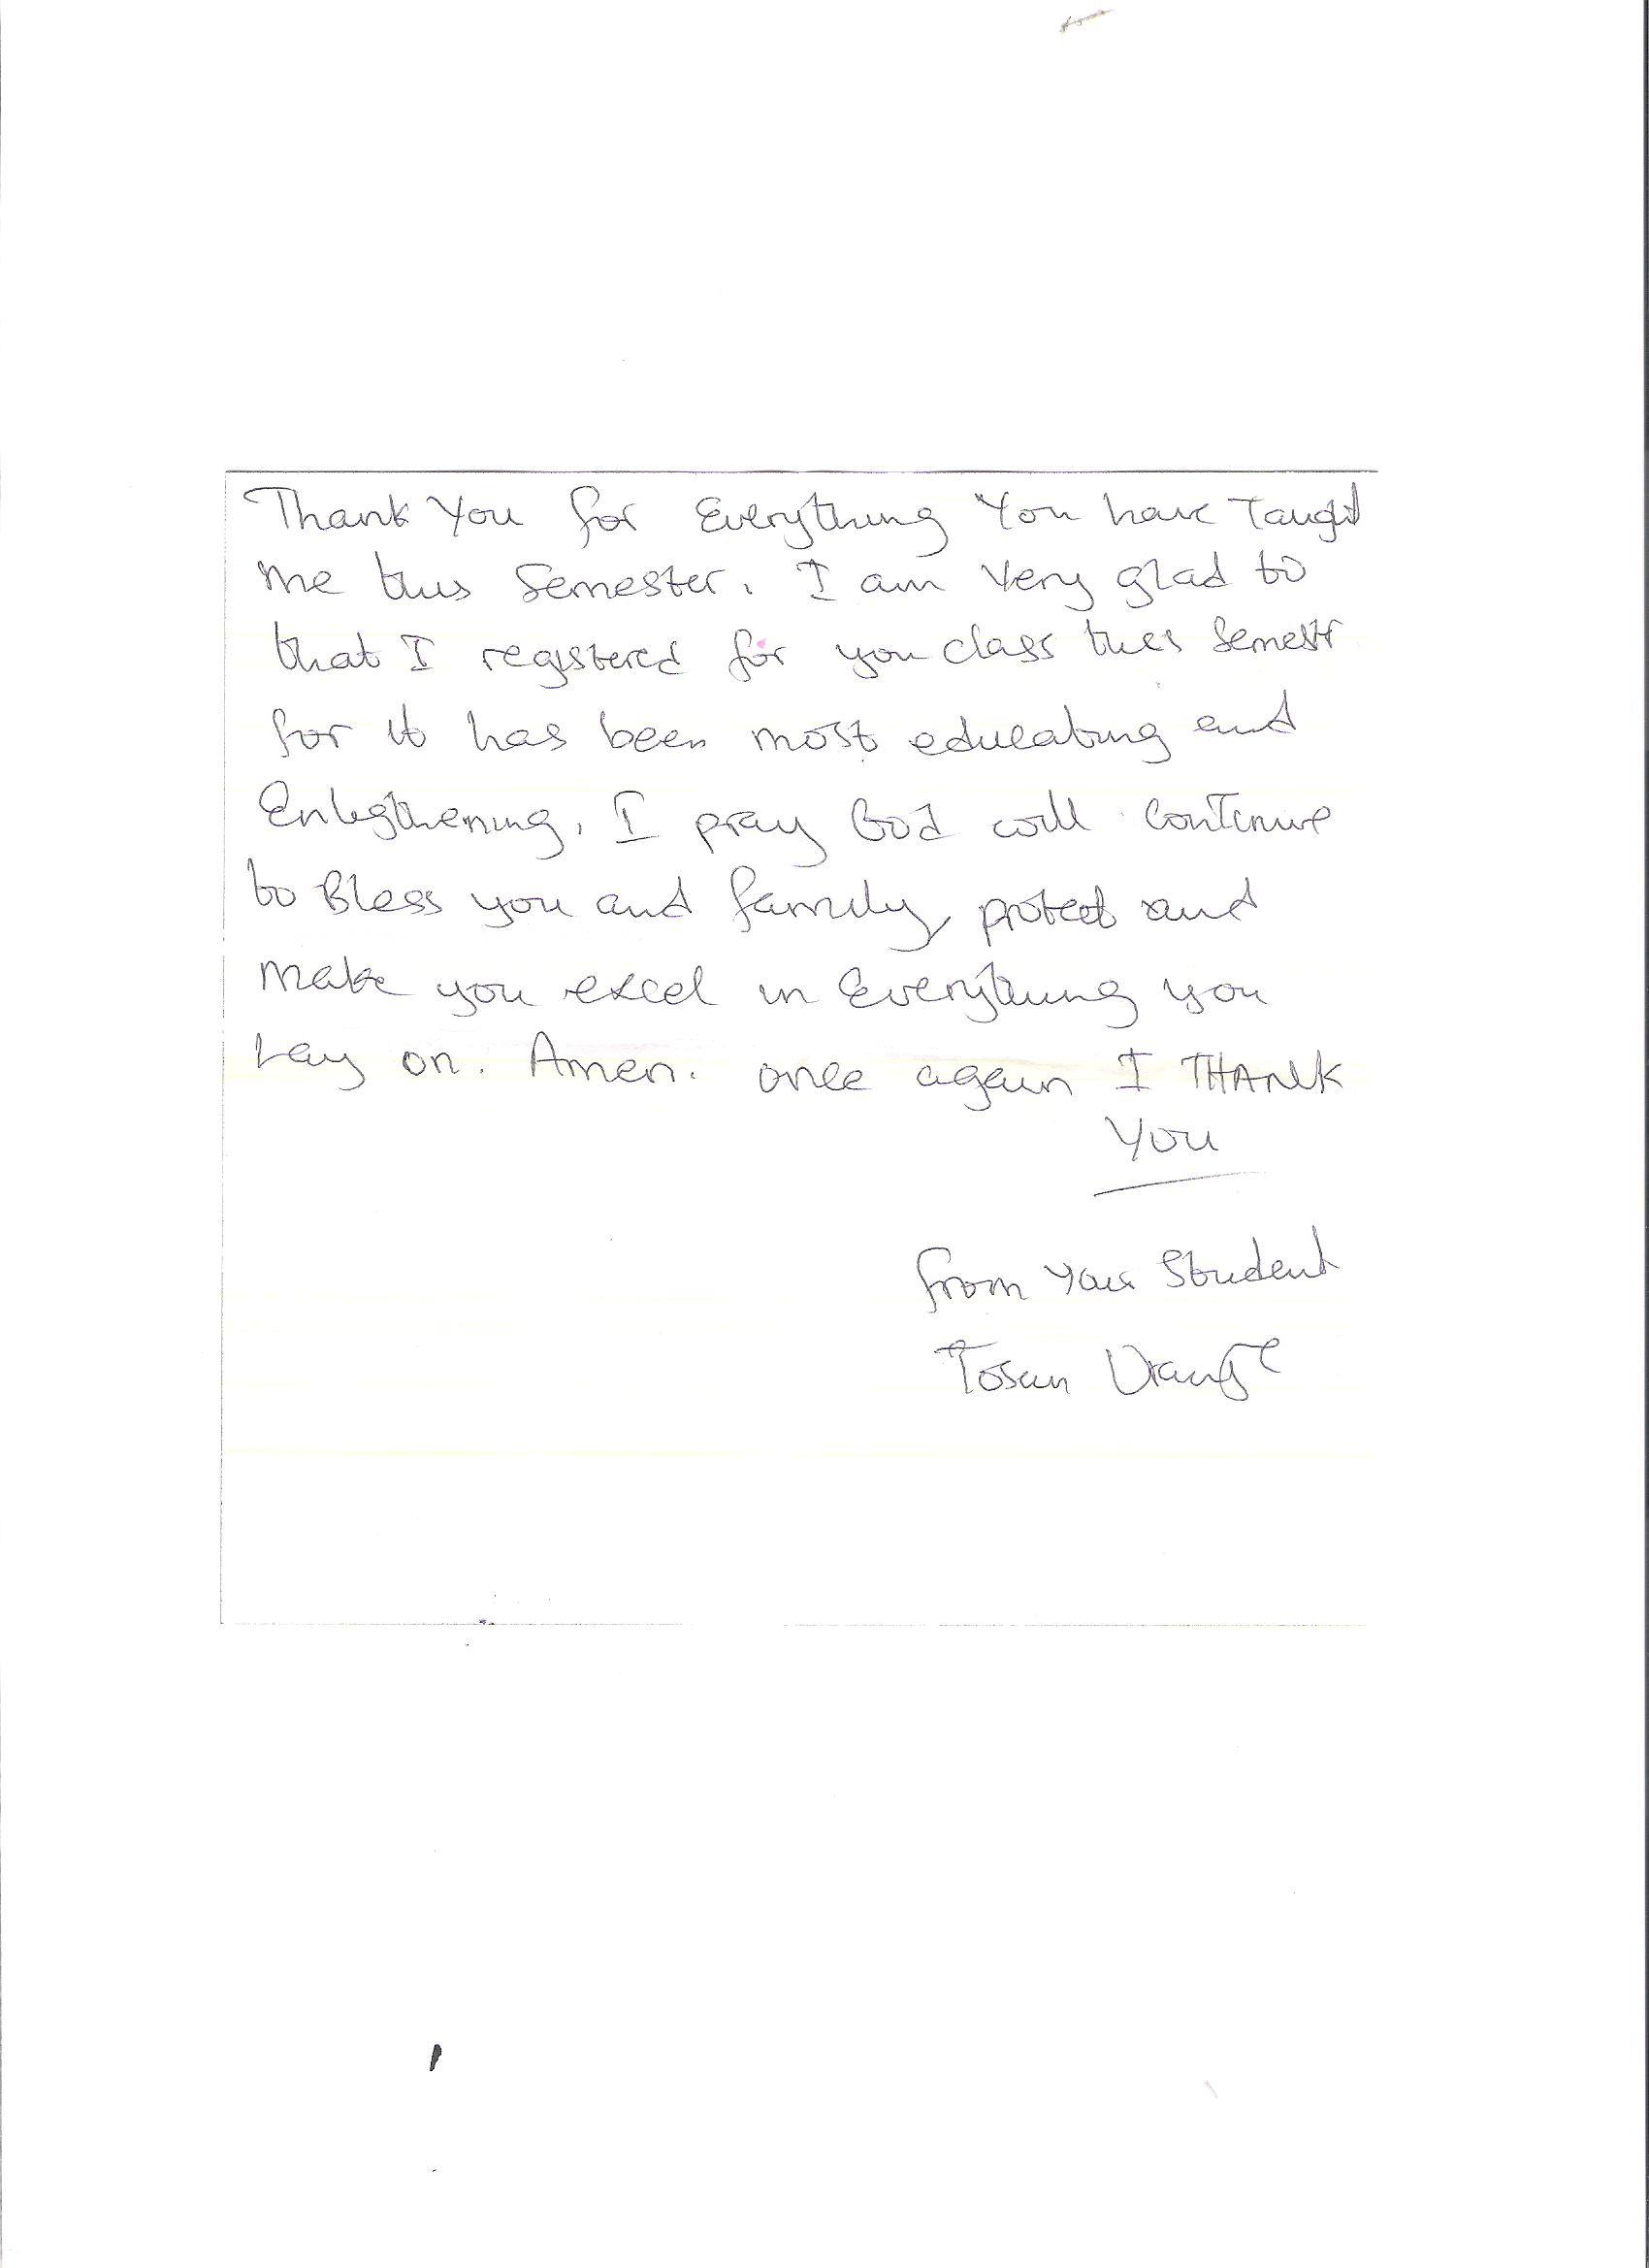 Thank You for Everything You have Taught
me this Semester. I am Very glad to
that I registered for you class this Semestr
for it has been most educating and
Enligthening. I pray God will continue
to Bless you and family, protect and
make you excel in Everything you
Lay on. Amen. once again I THANK
YOU
from Your Student
Tosan